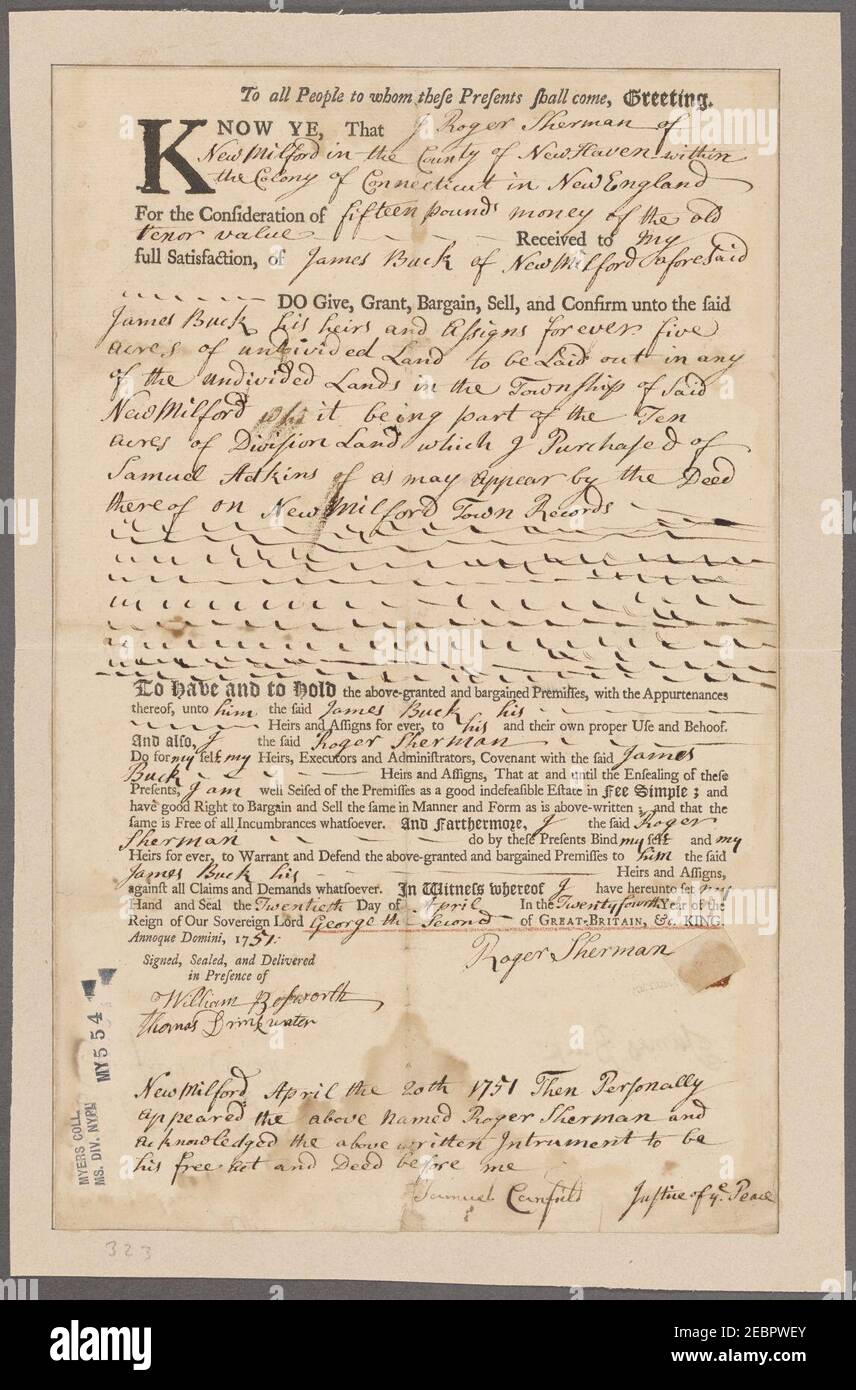 To all People to whom theſe Preſents ſhall come, Greeting.
KNOW YE, That I Roger Sherman of
New Milford in the County of New Haven within
the Colony of Connecticut in New England
For the Conſideration of fifteen pounds money of the old
tenor value Received to my
full Satisfaction, of James Buck of New Milford aforesaid
DO Give, Grant, Bargain, Sell, and Confirm unto the ſaid
James Buck his heirs and assigns forever five
acres of undivided Land to be Laid out in any
of the undivided Lands in the Township of Said
New Milford it being part of the Ten
acres of Division Land which I Purchased of
Samuel Adkins of as may appear by the Deed
thereof on New Milford Town Records
To Have and to Hold the above-granted and bargained Premiſſes, with the Appurtenances
thereof, unto him the ſaid James Buck his
Heirs and Aſſigns for ever, to his and their own proper Uſe and Behoof.
And alſo, I the ſaid Roger Sherman
Do for my self my Heirs, Executors and Adminiſtrators, Covenant with the ſaid James
Buck Heirs and Aſſigns, That at and until the Enſealing of theſe
Preſents, I am well Seiſed of the Premiſſes as a good indefeaſible Eſtate in Fee Simple; and
have good Right to Bargain and Sell the ſame in Manner and Form as is above-written; and that the
ſame is Free of all Incumbrances whatſoever. And Farthermore, I the ſaid Roger
Sherman do by theſe Preſents Bind my self and my
Heirs for ever, to Warrant and Defend the above-granted and bargained Premiſſes to him the ſaid
James Buck his Heirs and Aſſigns,
againſt all Claims and Demands whatſoever. In Witneſs whereof I have hereunto ſet my
Hand and Seal the Twentieth Day of April In the Twenty fourth Year of the
Reign of Our Sovereign Lord George the Second of GREAT-BRITAIN, &c. KING.
Annoque Domini, 1751.
Roger Sherman
Signed, Sealed, and Delivered
in Preſence of
William Bosworth
Thomas Drinkwater
New Milford April the 20th 1751 Then Personally
appeared the above named Roger Sherman and
acknowledged the above written Intrument to be
his free act and Deed before me
Samuel Canfield Justice of ye. Peace
MYERS COLL.
MS. DIV. NYPL
MY554
323
alamy
Image ID: 2EBPWEY
www.alamy.com